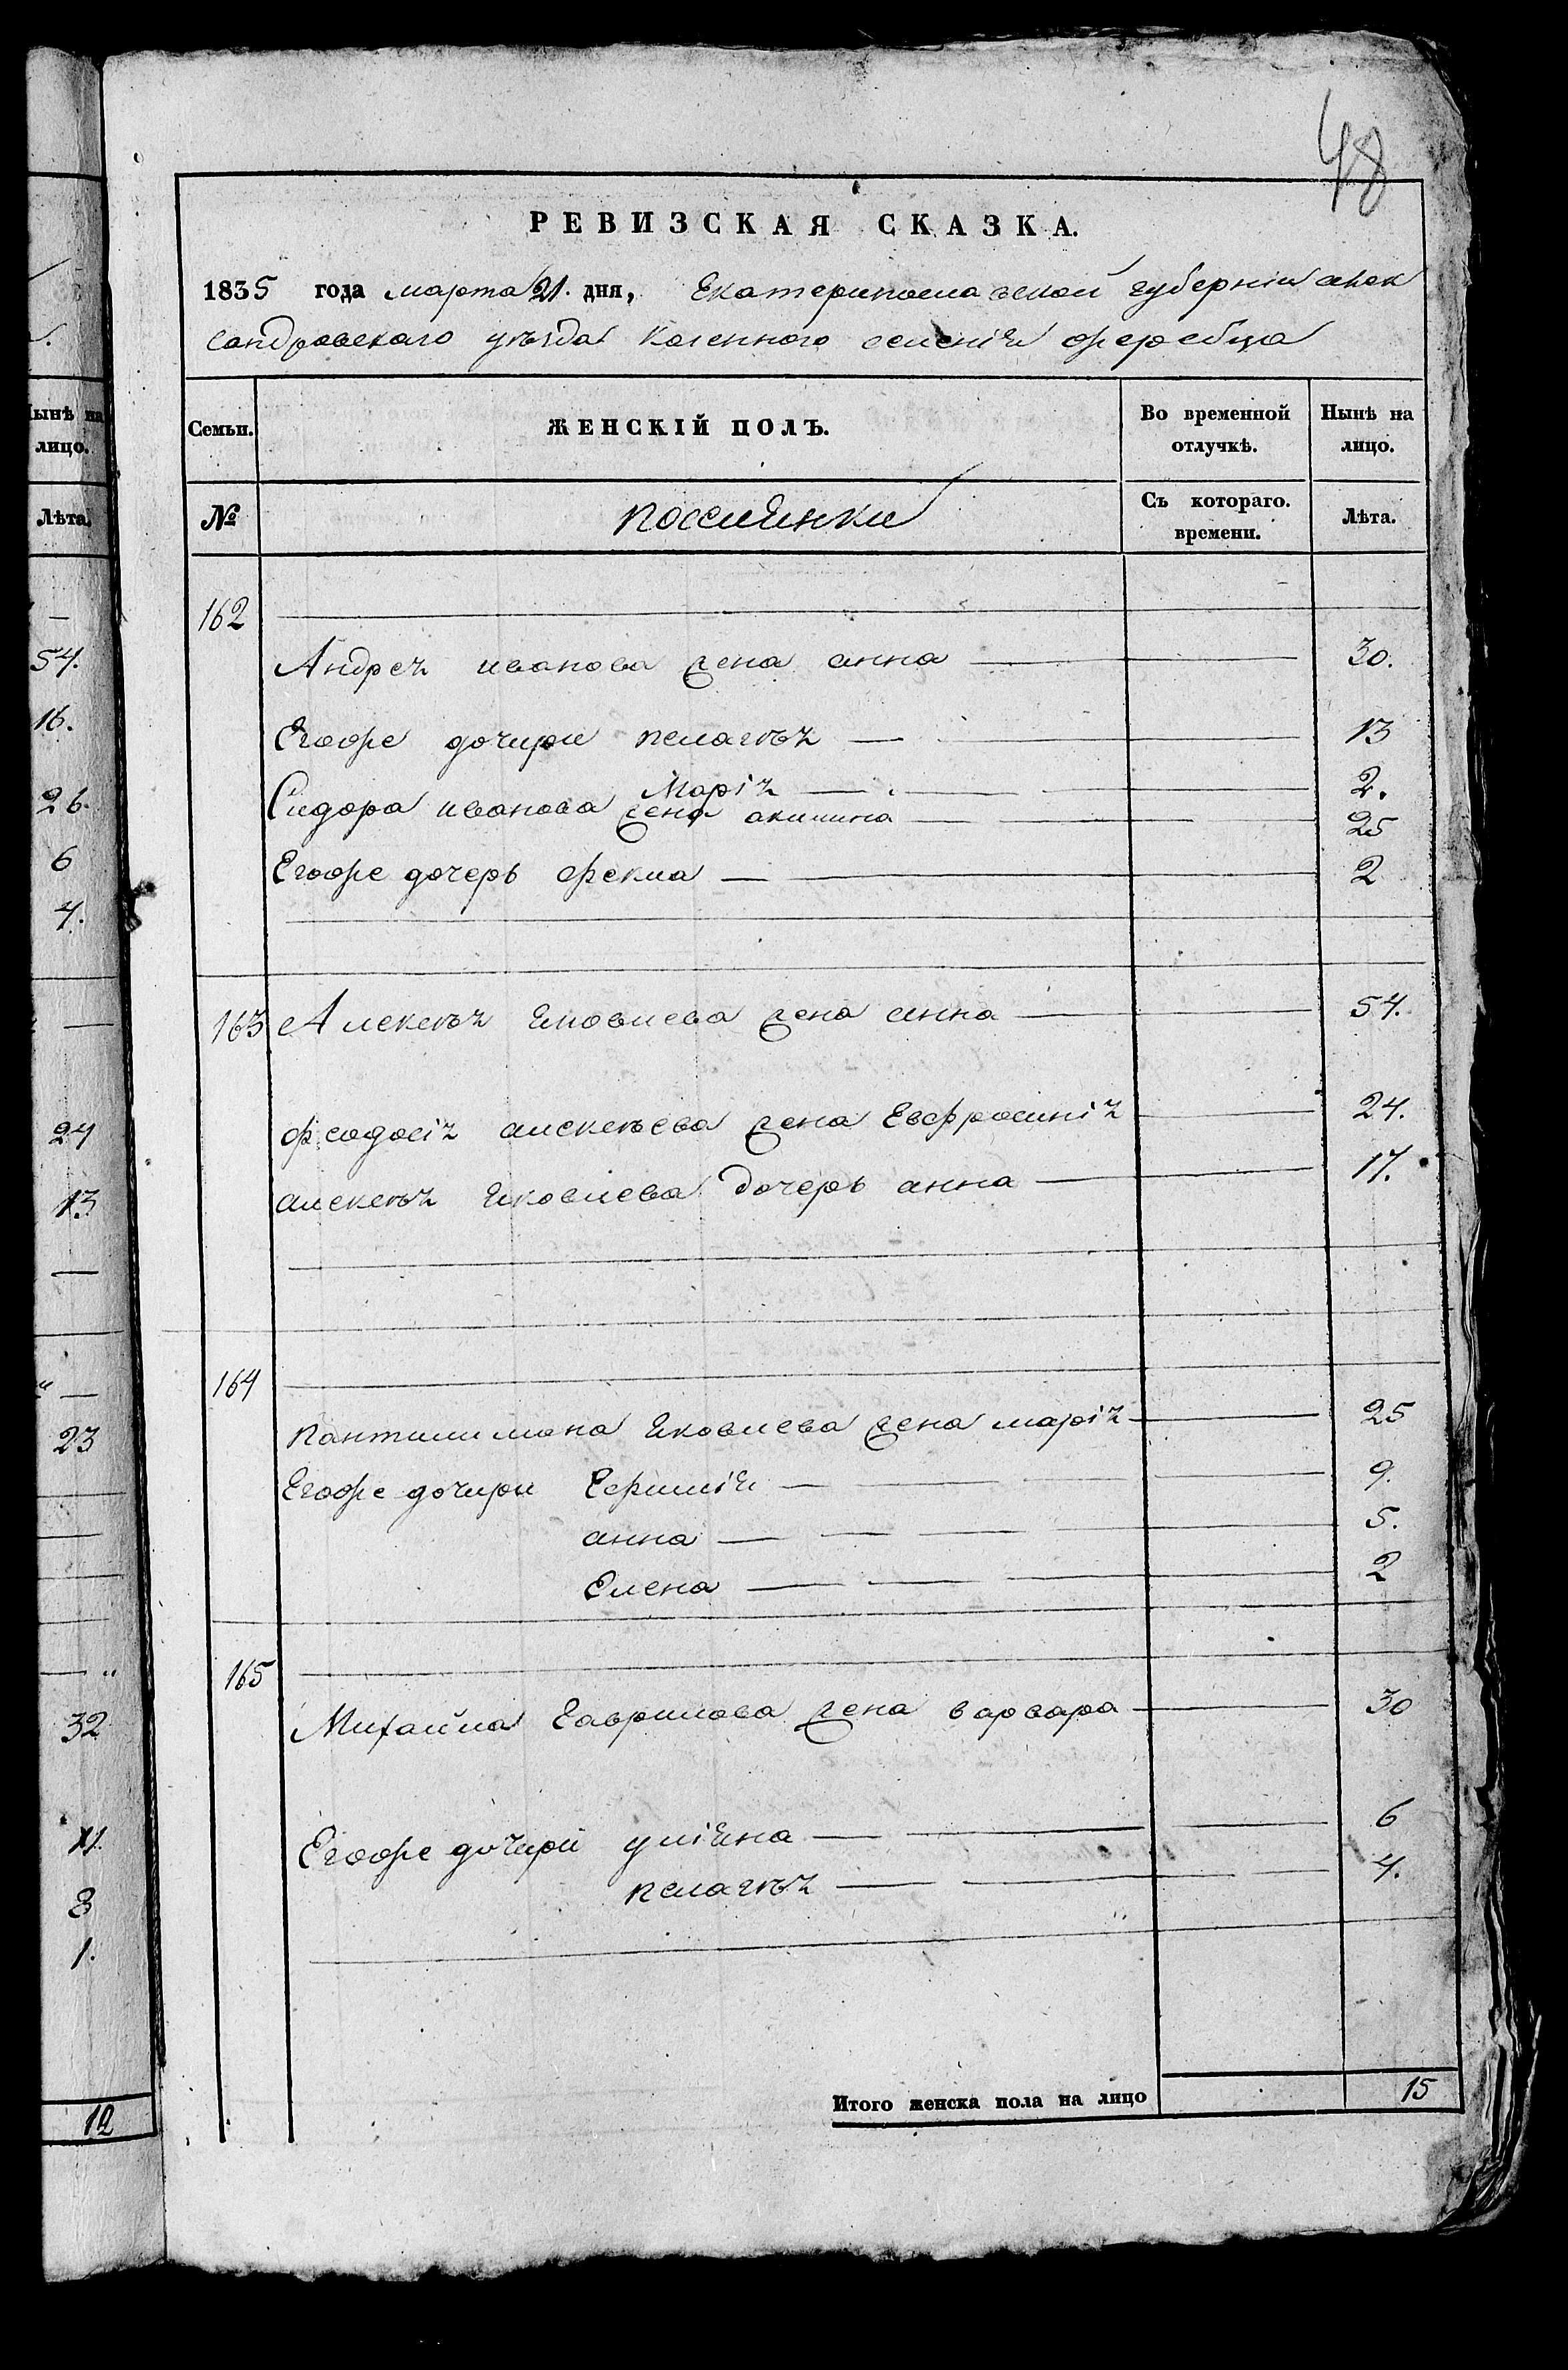 48
РЕВИЗСКАЯ СКАЗКА.
1835 года марта 21. дня, Екатеринославской губерніи алек
сандровского уѣзда Казенного селенія жеребца
Семьи.
ЖЕНСКІЙ ПОЛЪ.
Во временной отлучкѣ.
Нынѣ на лицо.
№
поселянки
Съ котораго. времени.
Лѣта.
162
Андрея иванова жена анна 30.
Егоже дочири пелагѣя 13
Марія 2.
Сидора иванова жена акилина 25
Егоже дочерь фекла 2
163 Алексѣя яковлева жена анна 54.
феодосія алексѣева жена Евфросинія 24.
алексѣя яковлева дочерь анна 17.
164
пантилимона яковлева жена марія 25
Егоже дочири Ефимія 9.
анна 5.
Елена 2
165
Михайла гаврилова жена варвара 30
Егоже дочири уліяна 6
пелагѣя 4.
Итого женска пола на лицо 15
ынѣ на
лицо.
Лѣта.
54.
16.
26.
6
4.
24
13
23
32
11.
8
1.
12